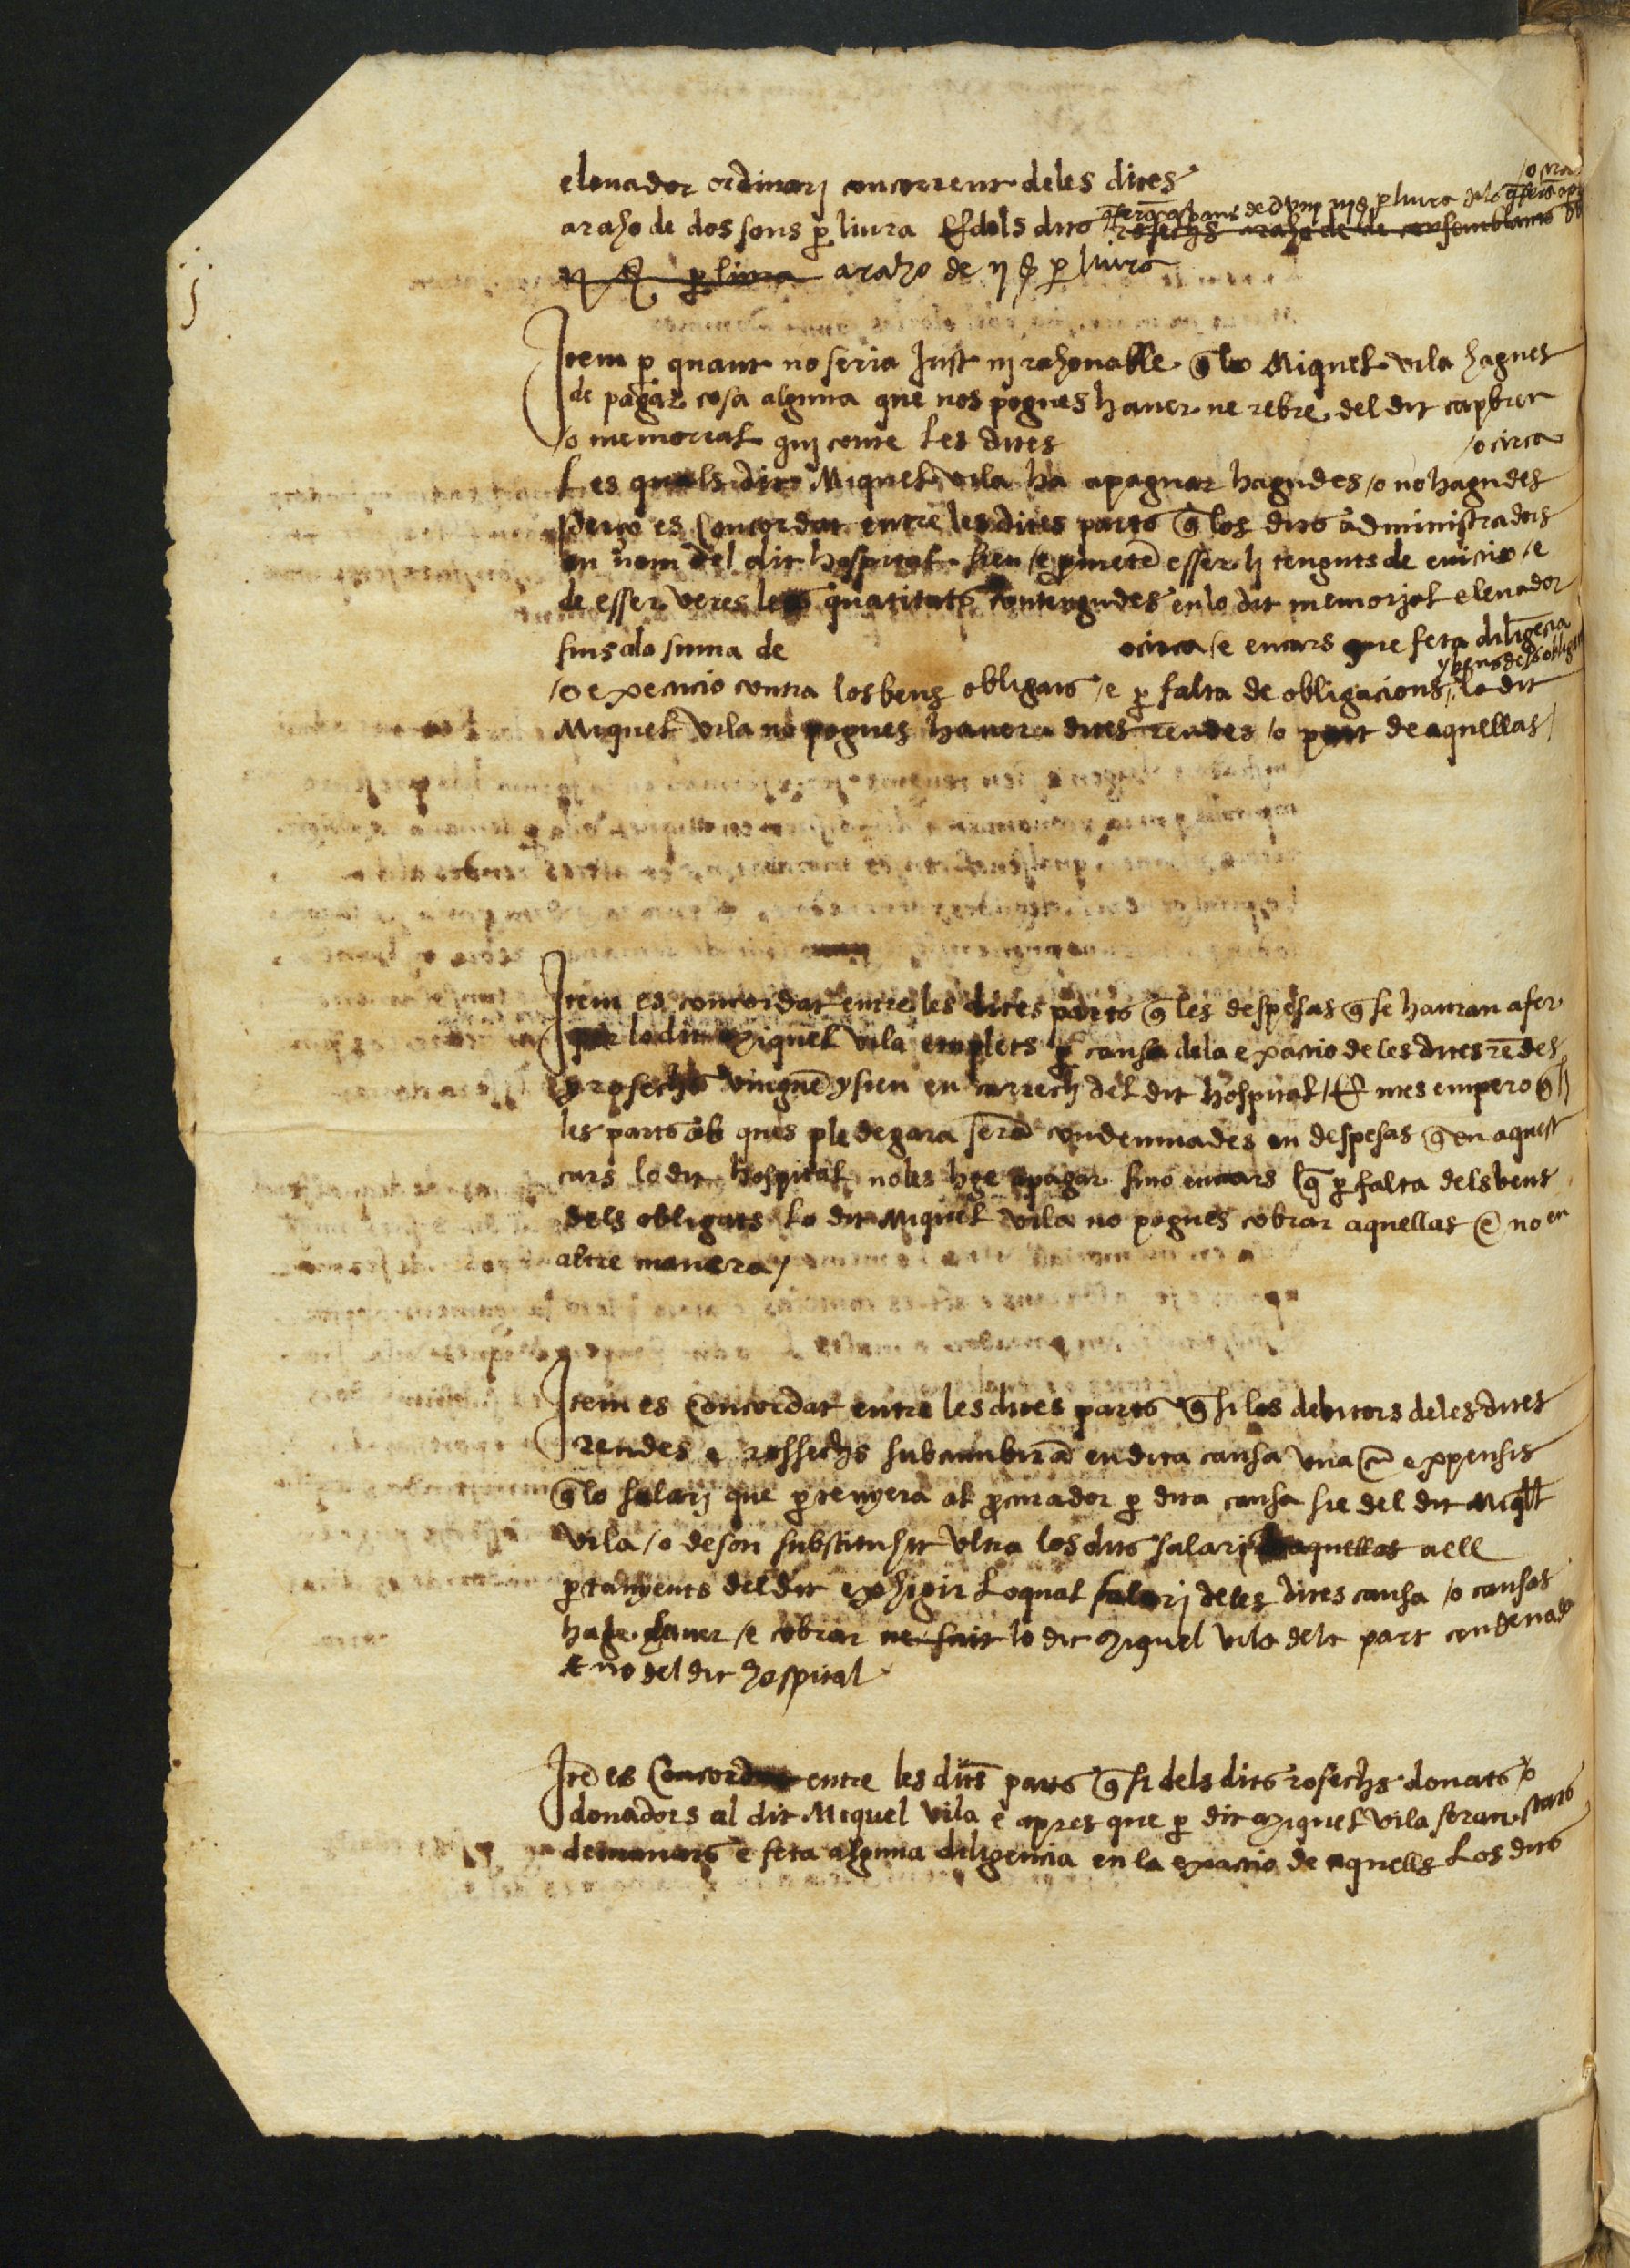 elevador ordinarj concorrent deles dites /o cira
araho de dos sous p̱ liura E dels dits rosechs araho de de consemblants
p̱ liura araho de ij ß p̱ liura
Item p̱ quant no seria Just nj rahonable q̄ lo Miquel vila hagues
de pagar cosa alguna que nos pogues hauer ne rebre del dit capbreu
/o memorial quj conte les dites /o circa
Les quals dit Miquel vila ha apaguar hagudes /o no hagudes
Perço es Concordat entre les dites parts q̄ los dits administradors
en nom del dit hospital sien /e prometē esser lj tenguts de euictio /e
de esser veres les quātitats contengudes en lo dit memorjal eleuador
fins ala suma de o circa /e en cars que feta diligēcia
/o execucio contra los bens obligats /e p̱ falta de obligacions y bens dels obligats lo dit
Miquel vila no pogues hauer dites rendes /o part de aquellas /
Item es concordat entre les dites parts q̄ les despesas q̄ se hauran afer
per lo dit Miquel vila en plets p̱ causa dela exactio de les dites rēdes
y rosechs vinguē y sien en carrech del dit hospital / E mes empero q̄ si
les parts ab ques pledegara serā condemnades en despesas q̄ en aquest
cars lo dit hospital noles hge apagar sino en cars q̄ p̱ falta dels bens
dels obligats lo dit Miquel vila no pogues cobrar aquellas e no en
altre manera /
Item es Concordat entre les dites parts q̄ si los debitors deles dites
rendes e rossechs subcumbirā en dita causa vna cū expensis
q̄ lo salarj que p̱tenyera al p̱curador p̱ dita causa sie del dit Miq̄l
vila /o de son substituhit vltra los dits salaris aquellas aell
p̱tanyents del dit exhigir Loqual salarj deles dites causa /o causas
hage hauer /e cobrar lo dit Miquel vila dela part condenada
E no del dit hospital
Itē es Concordat entre les dits parts q̄ si dels dits rosechs donats /o
donadors al dit Miquel vila e apres que p̱ dit Miquel vila seran stats
demanats e feta alguna diligencia en la exactio de aquells Los dits